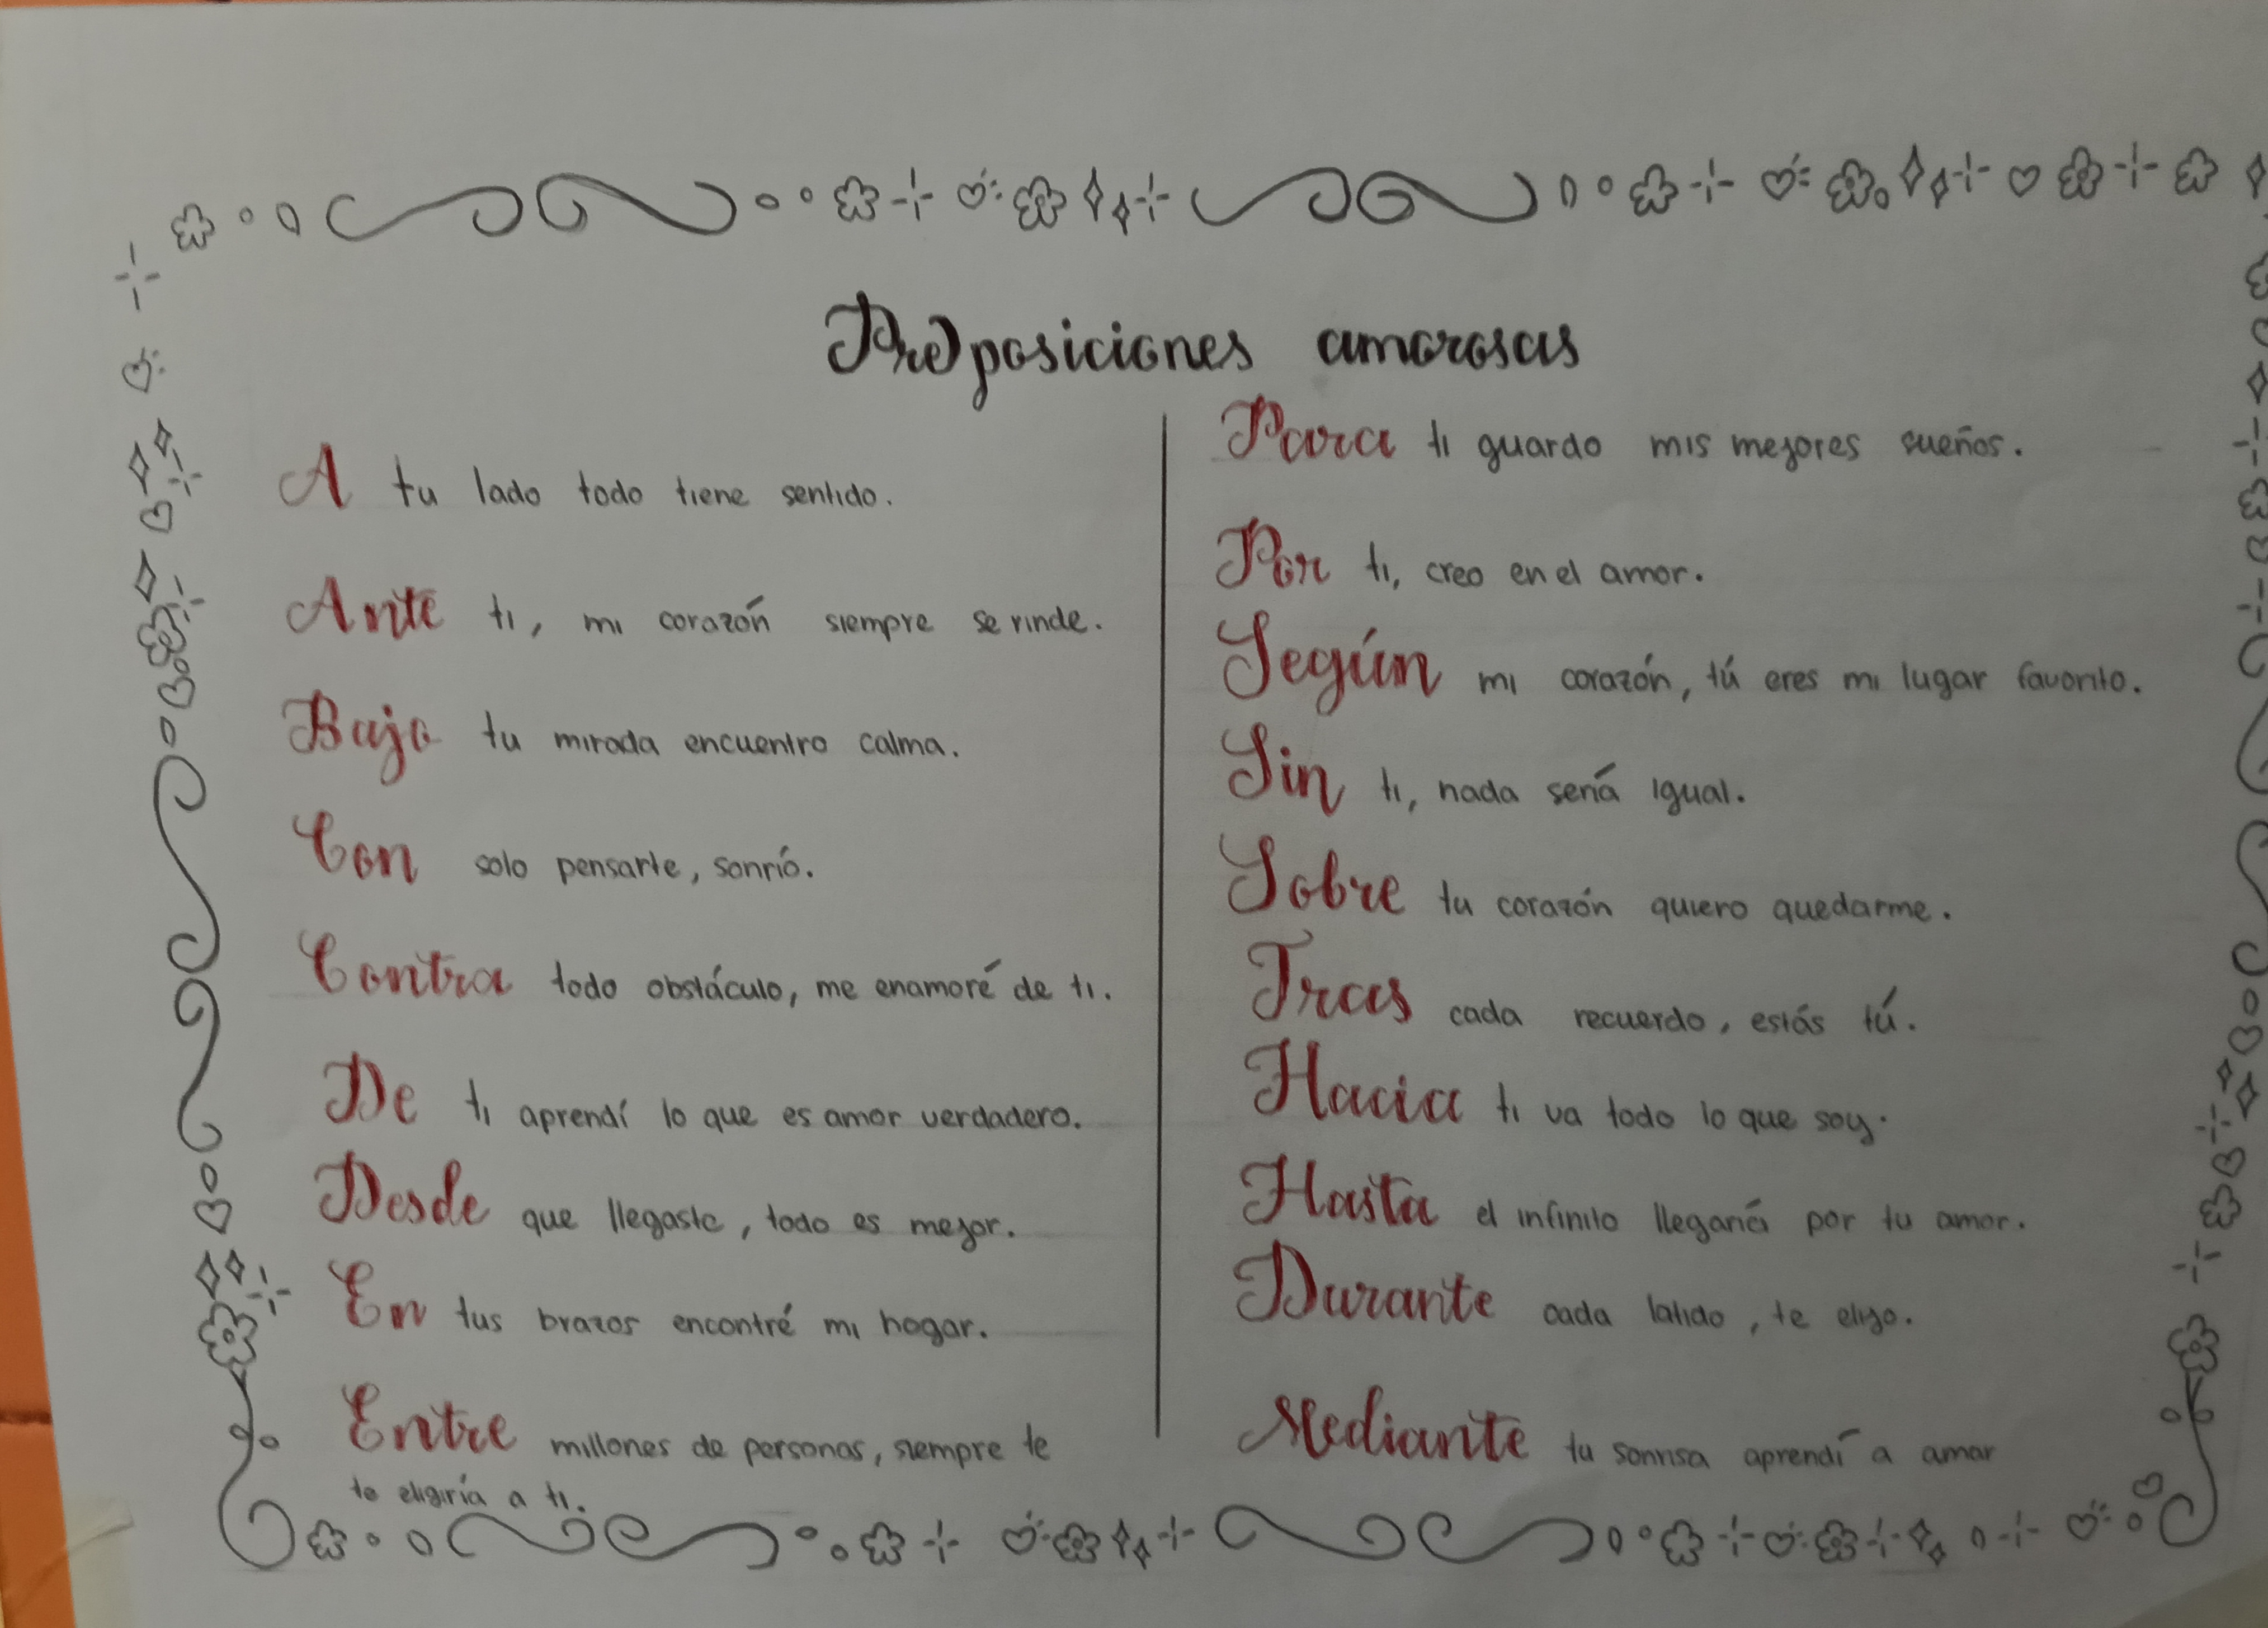 (Pre)posiciones amorosas
A tu lado todo tiene sentido.
Ante ti, mi corazón siempre se rinde.
Bajo tu mirada encuentro calma.
Con solo pensarte, sonrío.
Contra todo obstáculo, me enamoré de ti.
De ti aprendí lo que es amor verdadero.
Desde que llegaste, todo es mejor.
En tus brazos encontré mi hogar.
Entre millones de personas, siempre te
te eligiría a ti.
Para ti guardo mis mejores sueños.
Por ti, creo en el amor.
Según mi corazón, tú eres mi lugar favorito.
Sin ti, nada sería igual.
Sobre tu corazón quiero quedarme.
Tras cada recuerdo, estás tú.
Hacia ti va todo lo que soy.
Hasta el infinito llegaría por tu amor.
Durante cada latido, te elijo.
Mediante tu sonrisa aprendí a amar